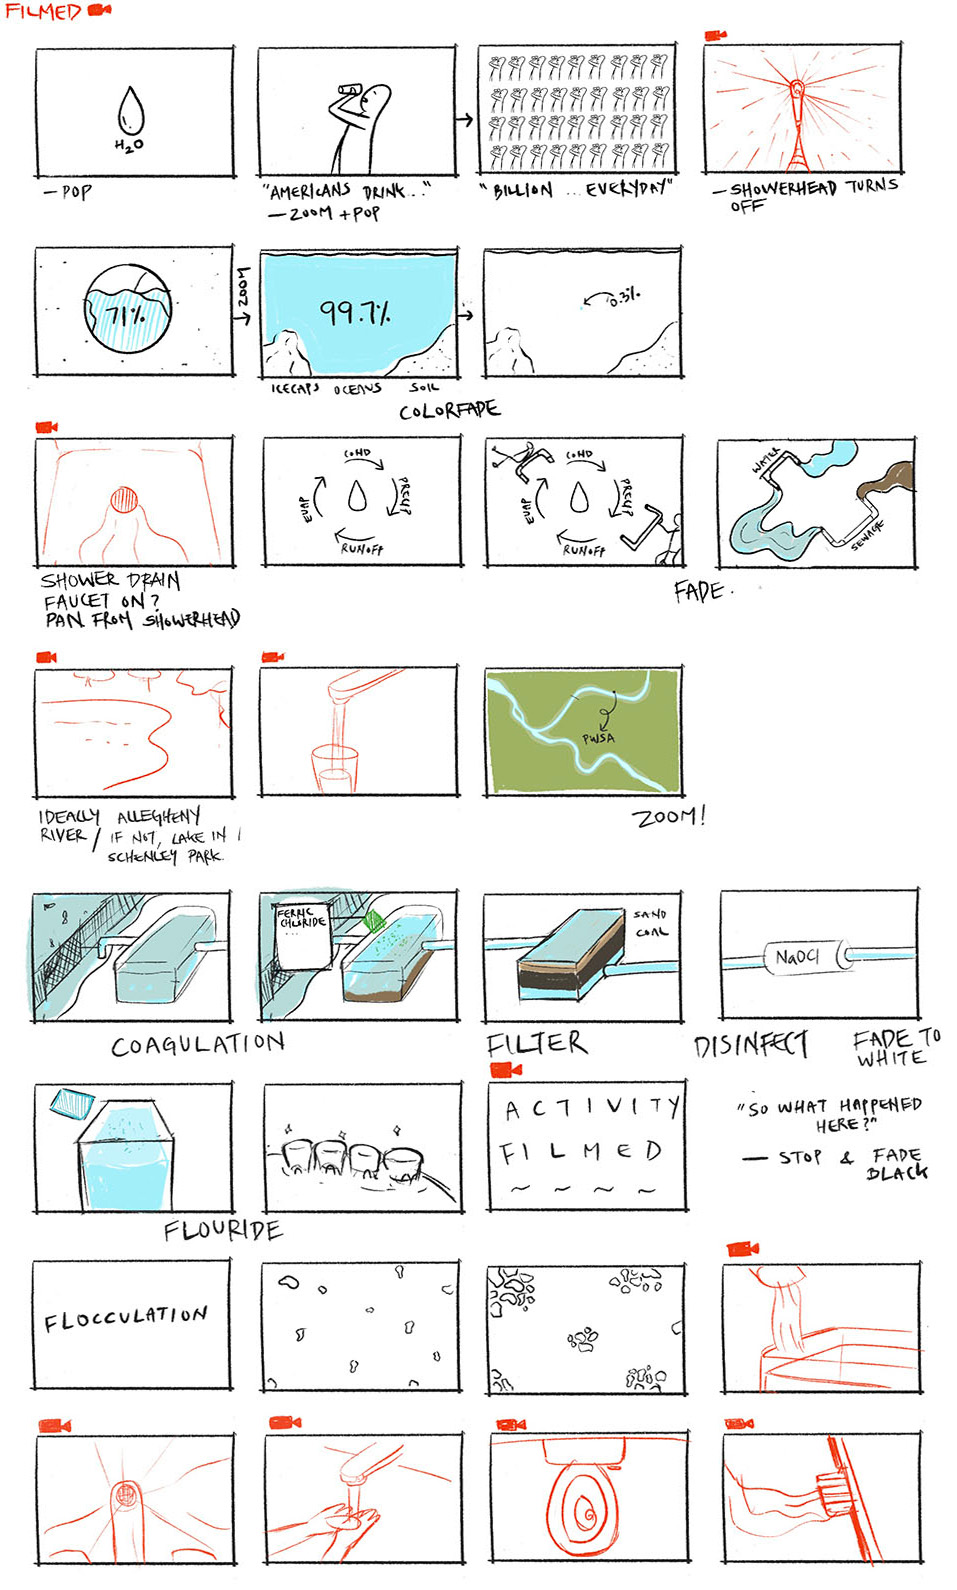 FILMED
H₂O
— POP
"AMERICANS DRINK..."
— ZOOM + POP
"BILLION ... EVERYDAY"
— SHOWERHEAD TURNS
OFF
71%
ZOOM
99.7%
0.3%
ICECAPS OCEANS SOIL
COLORFADE
SHOWER DRAIN
FAUCET ON?
PAN FROM SHOWERHEAD
COND
PRECIP
RUNOFF
EVAP
COND
PRECIP
RUNOFF
EVAP
WATER
SEWAGE
FADE.
IDEALLY ALLEGHENY
RIVER / IF NOT, LAKE IN
SCHENLEY PARK.
PWSA
ZOOM!
FERRIC
CHLORIDE
...
COAGULATION
SAND
COAL
FILTER
NaOCl
DISINFECT
FADE TO
WHITE
FLOURIDE
ACTIVITY
FILMED
~ ~ ~ ~
"SO WHAT HAPPENED
HERE?"
— STOP & FADE
BLACK
FLOCCULATION